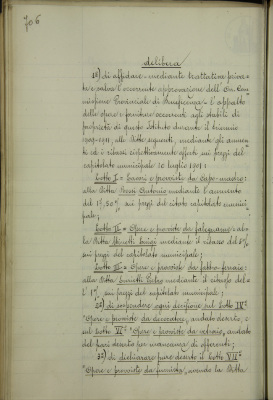 706
delibera
1º) di affidare - mediante trattative priva-
te e salva l'occorrente approvazione dell'On. Com-
missione Provinciale di Beneficenza - l'appalto
delle opere e forniture occorrenti agli stabili di
proprietà di questo Istituto durante il triennio
1909-1911, alle Ditte seguenti, mediante gli aumen-
ti ed i ribassi rispettivamente offerti sui prezzi del
capitolato municipale 10 luglio 1901:
Lotto I = Lavori e provviste da Capo-mastro:
alla Ditta Antonio mediante l'aumento
del 1%,50% sui prezzi del citato capitolato munici-
pale;
Lotto II = Opere e provviste da falegname: al-
la Ditta Luigi mediante il ribasso del %
sui prezzi del capitolato municipale;
Lotto III = Opere e provviste da fabbro-ferraio:
alla Ditta Pietro mediante il ribasso del-
l' 1% sui prezzi del capitolato municipale;
2º) di sospendere ogni decisione sul Lotto IVº
"Opere e provviste da decoratore, andato deserto, e
sul Lotto VIº "Opere e provviste da vetraio, andato
del pari deserto per mancanza di offerenti;
3º) di dichiarare pure deserto il Lotto VIIº
"Opere e provviste da fumista, avendo la Ditta